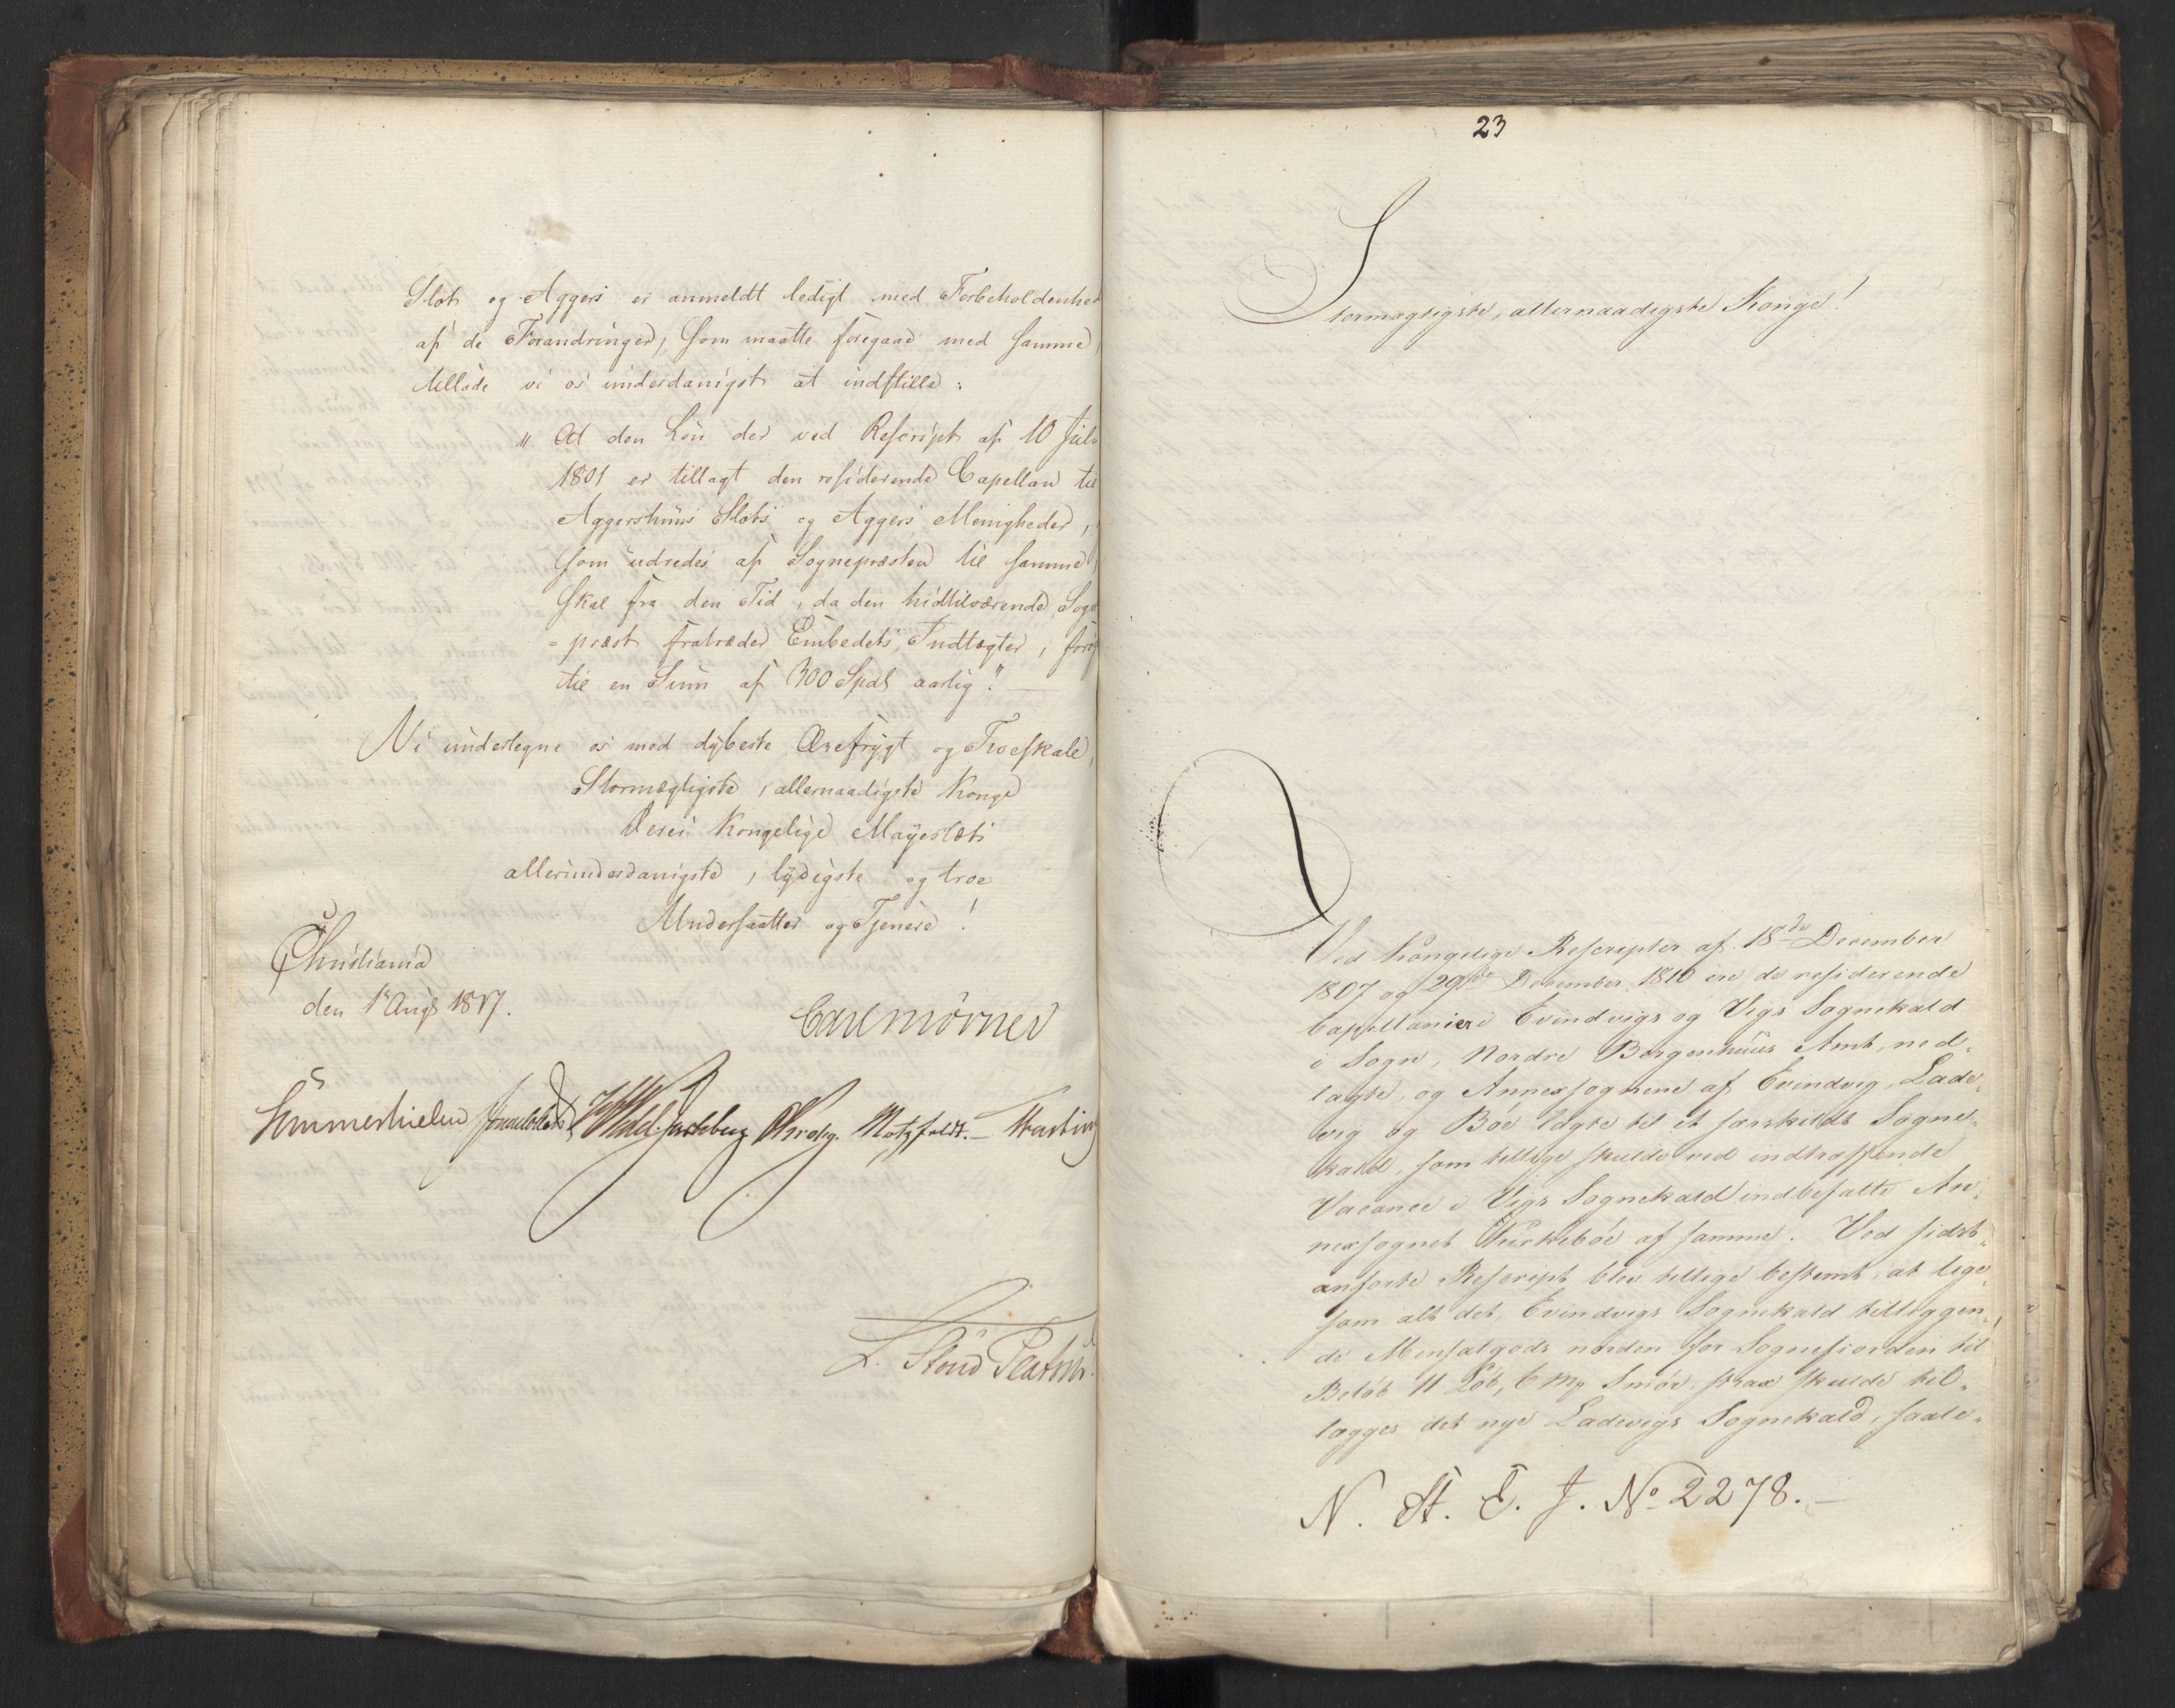 Slots og Aggers er anmeldt ledigt med Forbeholdenhed
af de Forandringer, som maatte foregaae med samme,
tillade vi os underdanigst at indstille:
"At den Løn der ved Rescript af 10 Juli
1801 er tillagt den residerende Capellan til
Aggershuus Slots og Aggers Menigheder,
som udredes af Sognepræsten til samme,
skal fra den Tid, da den hidtilværende Sogne
=præst fratræder Embedets Indtægter, forøges
til en Sum af 300 Spdlr aarlig." —
Vi undertegne os med dybeste Ærefrygt og Troeskab,
Stormægtigste, allernaadigste Konge
Deres Kongelige Mayestæts
allerunderdanigste, lydigste og troe
Undersaatter og Tjenere!
Christiania
den 1e Augs 1817.
Carl Mörner
Sommerhielm Krogh. Motzfeldt. —
L. Stoud Platou.
23
Stormægtigste, allernaadigste Konge!
Ved Kongelige Rescripter af 18de December
1807 og 29de December 1810 ere de residerende
Capellanier i Evindvigs og Vigs Sognekald
i Sogn, Nordre Bergenhuus Amt, ned-
lagte, og Annexsognene af Evindvig, Lade-
vig og Bøe lagte til et særskildt Sogne-
kald, som tillige skulde ved indtræffende
Vacance i Vigs Sognekald indbefatte An-
nexsognet Kirkebøe af samme. Ved sidst-
anførte Rescript blev tillige bestemt, at lige-
som alt det, Evindvigs Sognekald tilliggen-
de Mensalgods norden for Sognefiorden til
Beløb 11 Løb, 6 Mp Smør, strax skulde til-
lægges det nye Ladevigs Sognekald, saale-
N. St. E. J. No 2278. —